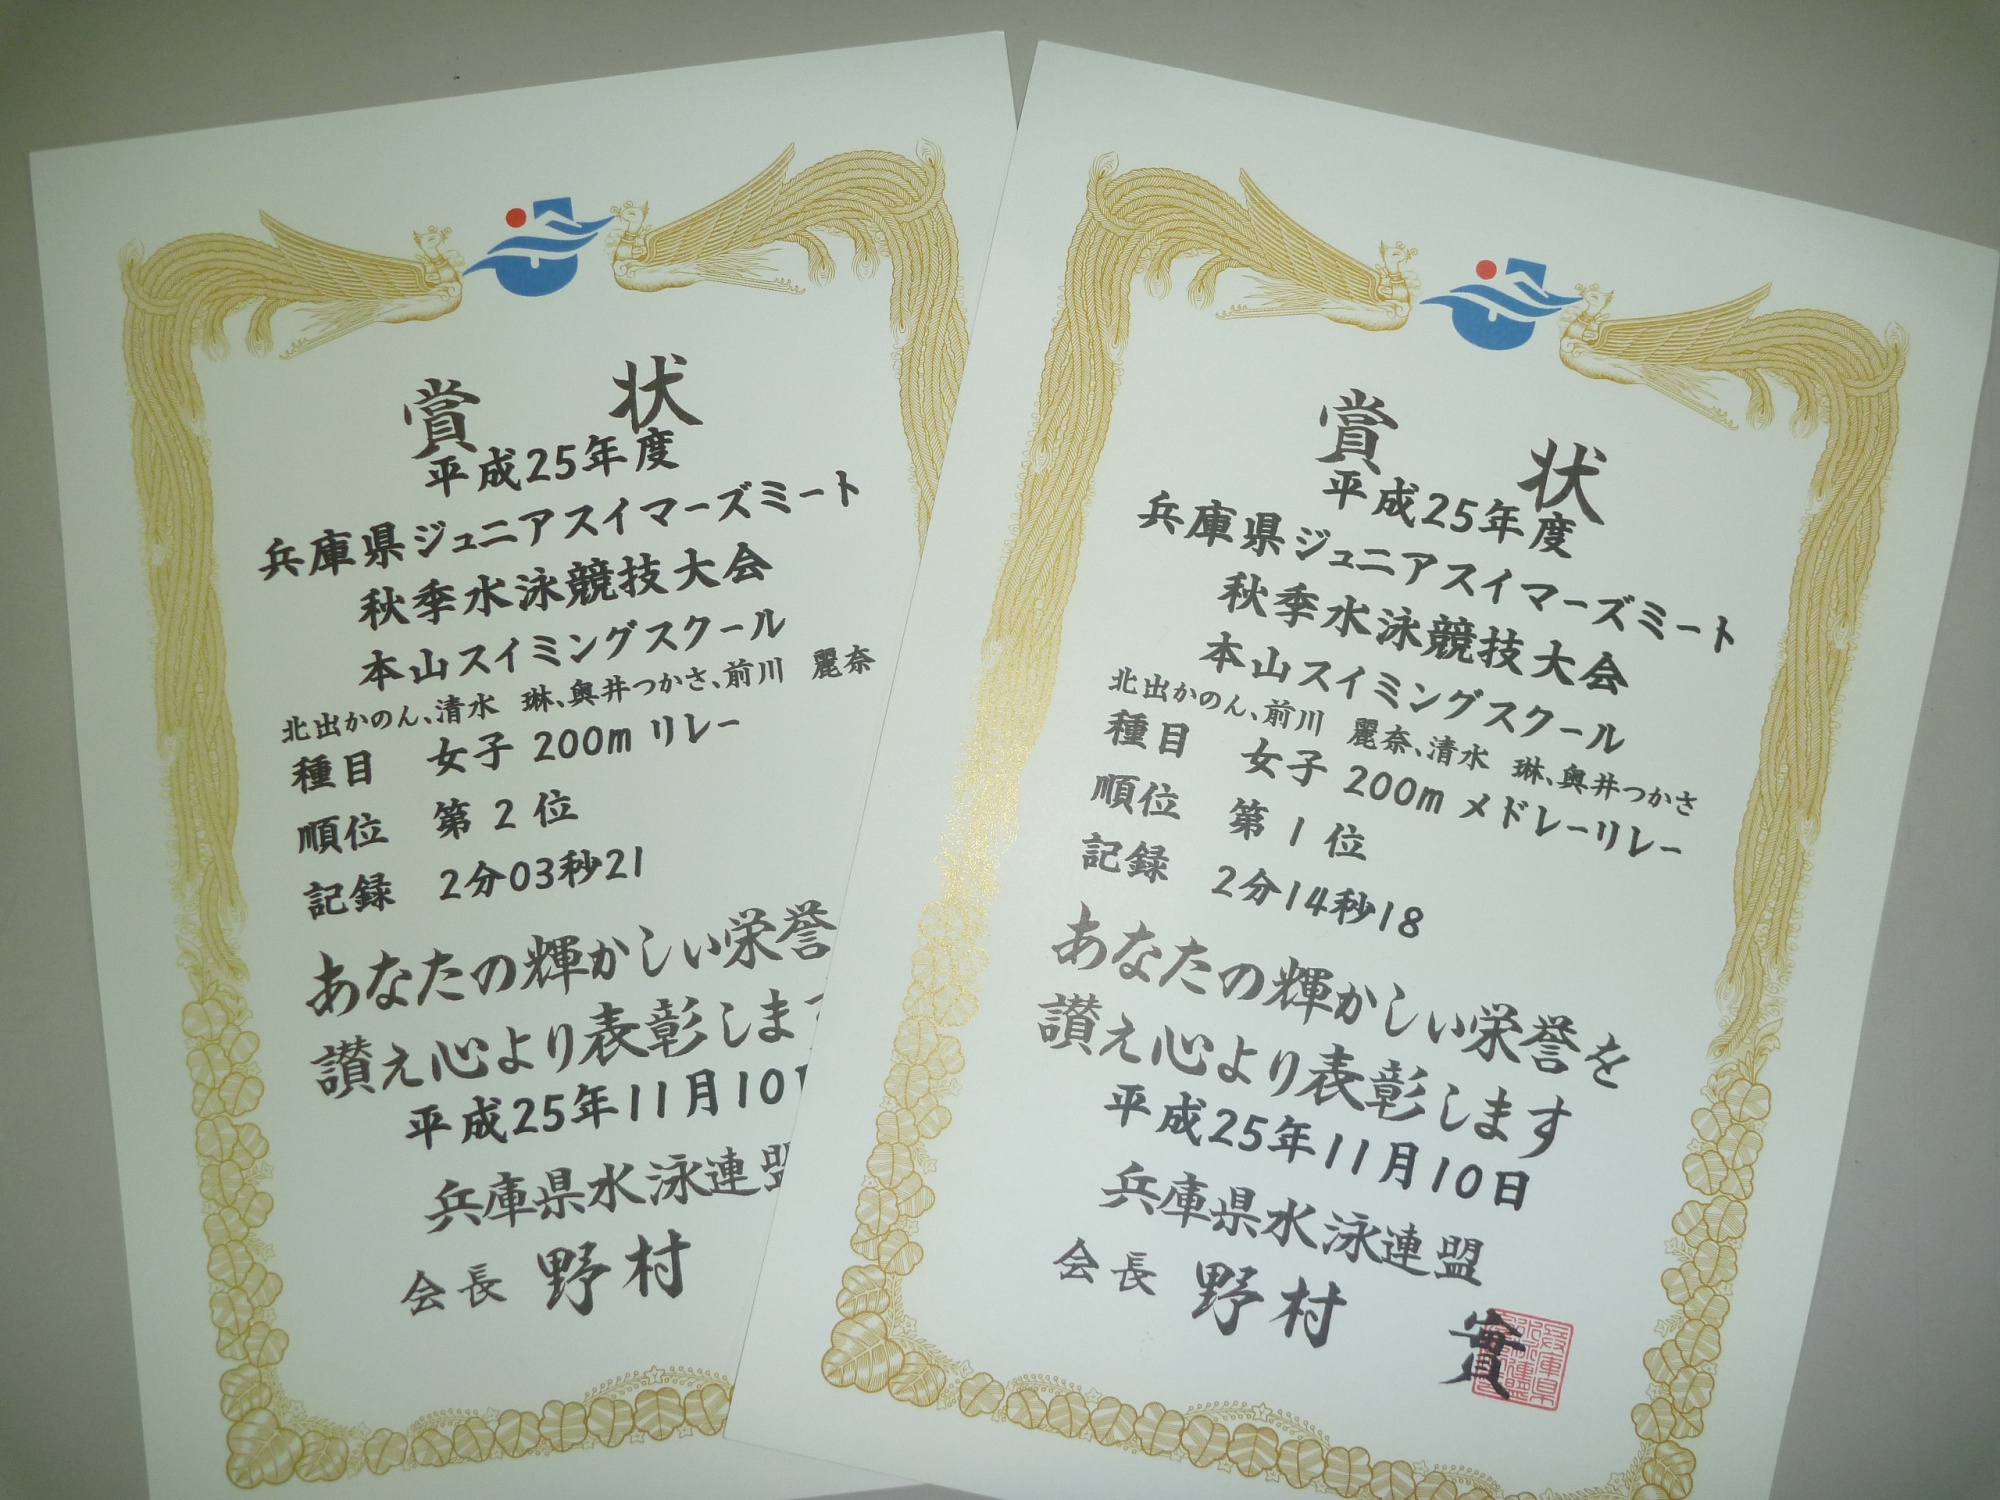 賞 状
平成25年度
兵庫県ジュニアスイマーズミート
秋季水泳競技大会
本山スイミングスクール
北出かのん、清水 琳、奥井つかさ、前川 麗奈
種目 女子 200m リレー
順位 第 2 位
記録 2分03秒21
あなたの輝かしい栄誉
讃え心より表彰します
平成25年11月10日
兵庫県水泳連盟
会長 野村
賞 状
平成25年度
兵庫県ジュニアスイマーズミート
秋季水泳競技大会
本山スイミングスクール
北出かのん、前川 麗奈、清水 琳、奥井つかさ
種目 女子 200m メドレーリレー
順位 第 1 位
記録 2分14秒18
あなたの輝かしい栄誉を
讃え心より表彰します
平成25年11月10日
兵庫県水泳連盟
会長 野村 實